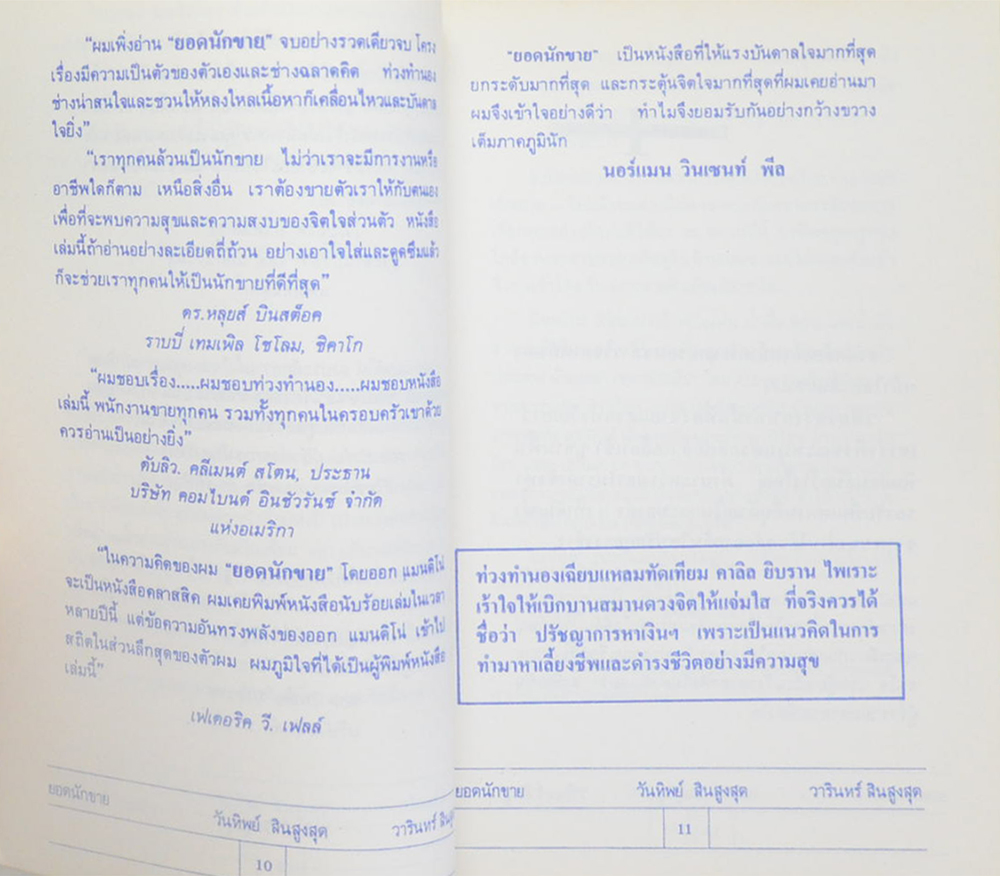 “ผมเพิ่งอ่าน “ยอดนักขาย” จบอย่างรวดเดียวจบ โครง
เรื่องมีความเป็นตัวของตัวเองและช่างฉลาดคิด ท่วงทำนอง
ช่างน่าสนใจและชวนให้หลงใหลเนื้อหาก็เคลื่อนไหวและบันดาล
ใจยิ่ง”
“เราทุกคนล้วนเป็นนักขาย ไม่ว่าเราจะมีการงานหรือ
อาชีพใดก็ตาม เหนือสิ่งอื่น เราต้องขายตัวเราให้กับตนเอง
เพื่อที่จะพบความสุขและความสงบของจิตใจส่วนตัว หนังสือ
เล่มนี้ถ้าอ่านอย่างละเอียดถี่ถ้วน อย่างเอาใจใส่และดูดซึมแล้ว
ก็จะช่วยเราทุกคนให้เป็นนักขายที่ดีที่สุด”
ดร.หลุยส์ บินสต็อค
ราบบี่ เทมเพิล โชโลม, ชิคาโก
“ผมชอบเรื่อง.....ผมชอบท่วงทำนอง.....ผมชอบหนังสือ
เล่มนี้ พนักงานขายทุกคน รวมทั้งทุกคนในครอบครัวเขาด้วย
ควรอ่านเป็นอย่างยิ่ง”
ดับลิว. คลีเมนต์ สโตน, ประธาน
บริษัท คอมไบนด์ อินชัวรันซ์ จำกัด
แห่งอเมริกา
“ในความคิดของผม “ยอดนักขาย” โดยออก แมนดิโน่
จะเป็นหนังสือคลาสสิค ผมเคยพิมพ์หนังสือนับร้อยเล่มในเวลา
หลายปีนี้ แต่ข้อความอันทรงพลังของออก แมนดิโน่ เข้าไป
สถิตในส่วนลึกสุดของตัวผม ผมภูมิใจที่ได้เป็นผู้พิมพ์หนังสือ
เล่มนี้”
เฟเดอริค วี. เฟลล์
ยอดนักขาย
วันทิพย์ สินสูงสุด
วารินทร์ สิน
10
“ยอดนักขาย” เป็นหนังสือที่ให้แรงบันดาลใจมากที่สุด
ยกระดับมากที่สุด และกระตุ้นจิตใจมากที่สุดที่ผมเคยอ่านมา
ผมจึงเข้าใจอย่างดีว่า ทำไมจึงยอมรับกันอย่างกว้างขวาง
เต็มภาคภูมินัก
นอร์แมน วินเซนท์ พีล
ท่วงทำนองเฉียบแหลมทัดเทียม คาลิล ยิบราน ไพเราะ
เร้าใจให้เบิกบานสมานดวงจิตให้แจ่มใส ที่จริงควรได้
ชื่อว่า ปรัชญาการหาเงินฯ เพราะเป็นแนวคิดในการ
ทำมาหาเลี้ยงชีพและดำรงชีวิตอย่างมีความสุข
ยอดนักขาย
วันทิพย์ สินสูงสุด
วารินทร์ สินสูงสุด
11